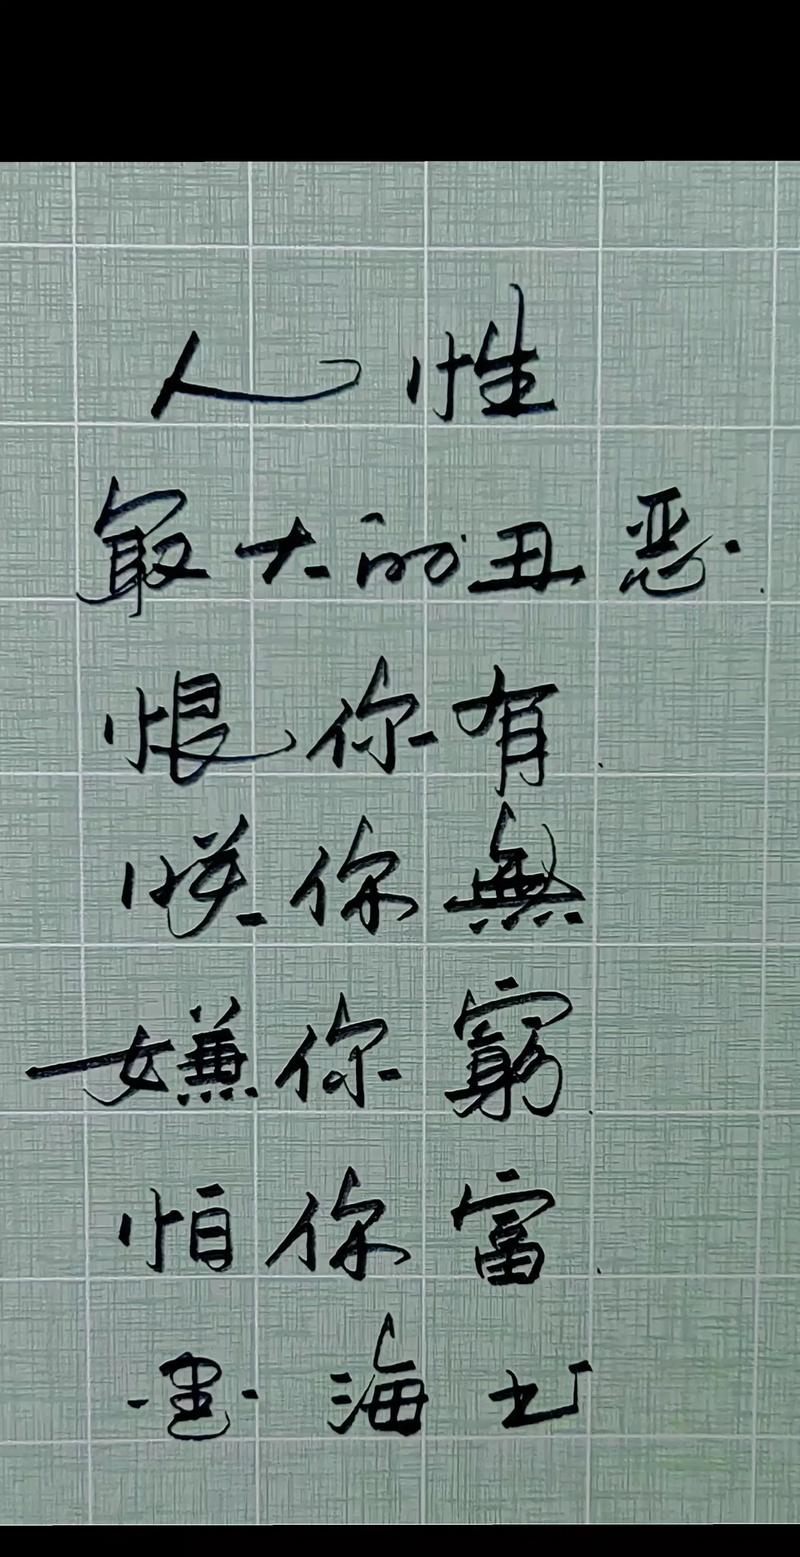 人性
最大的丑恶.
恨你有
咲你無
嫌你窮
怕你富
墨海